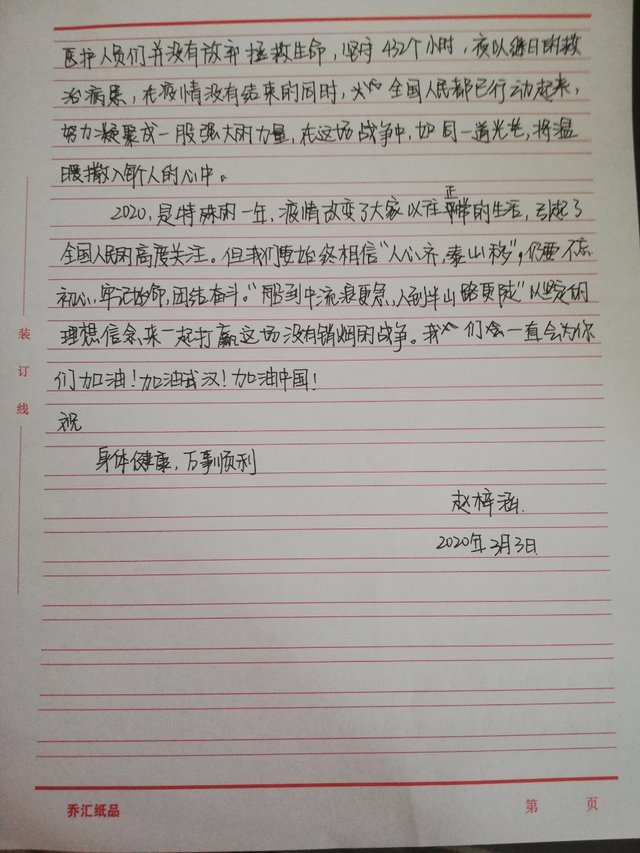 医护人员们并没有放弃拯救生命，坚守432个小时，夜以继日的救
治病患，在疫情没有结束的同时，全国人民都已行动起来，
努力凝聚成一股强大的力量，在这场战争中，如同一道光芒，将温
暖撒入每个人的心中。
2020，是特殊的一年，疫情改变了大家以往正常的生活，引起了
全国人民的高度关注。但我们要始终相信"人心齐，泰山移"，仍要不忘
初心，牢记使命，团结奋斗。"船到中流浪更急，人到半山路更陡"以坚定的
理想信念来一起打赢这场没有销烟的战争。我们会一直会为你
们加油！加油武汉！加油中国！
祝
身体健康，万事顺利
赵梓涵
2020年3月3日
装
订
线
乔汇纸品
第 页